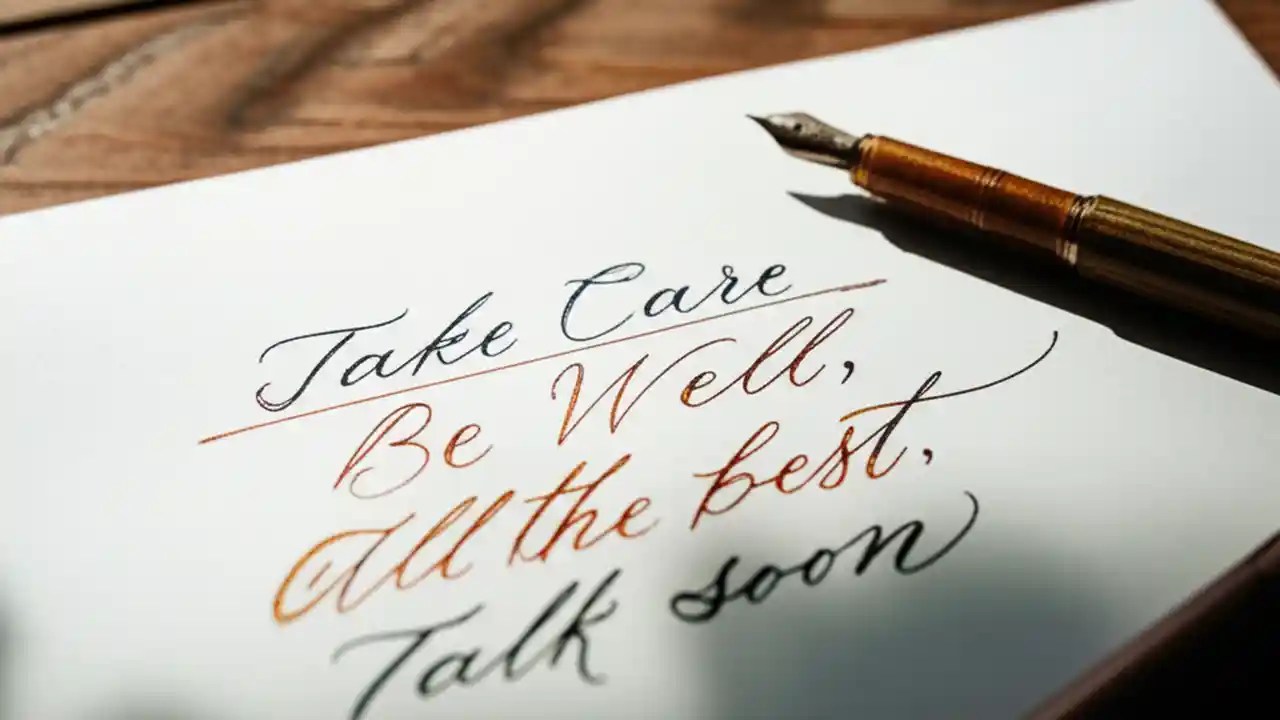 Take Care
Be Well,
All the best,
Talk soon